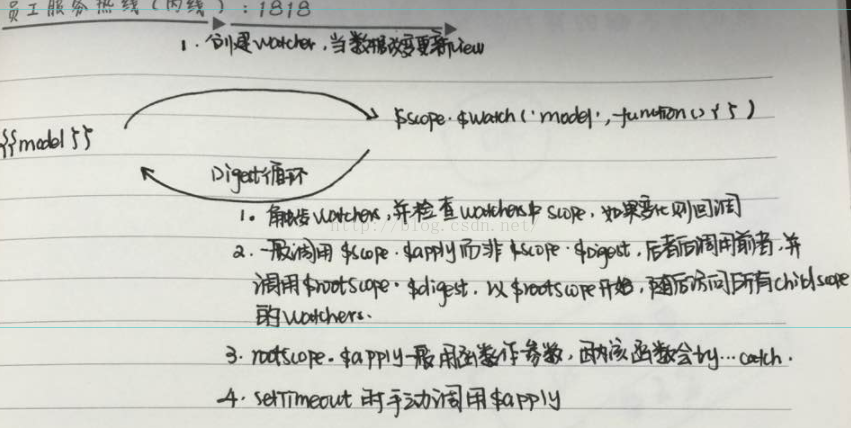 员工服务热线（内线）：1818
1. 创建watcher,当数据改变更新view
{{model}}
$scope.$watch('model',function(){})
Digest循环
1. 触发watchers,并检查watchers中scope,如果变化则回调
http://blog.csdn.net/
2. 一般调用$scope.$apply而非$scope.$digest,后者后调用前者,并
调用$rootScope.$digest.以$rootscope开始,随后访问所有childscope
的watchers.
3. rootscope.$apply一般用函数作参数,因为该函数会try…catch.
4. setTimeout时手动调用$apply